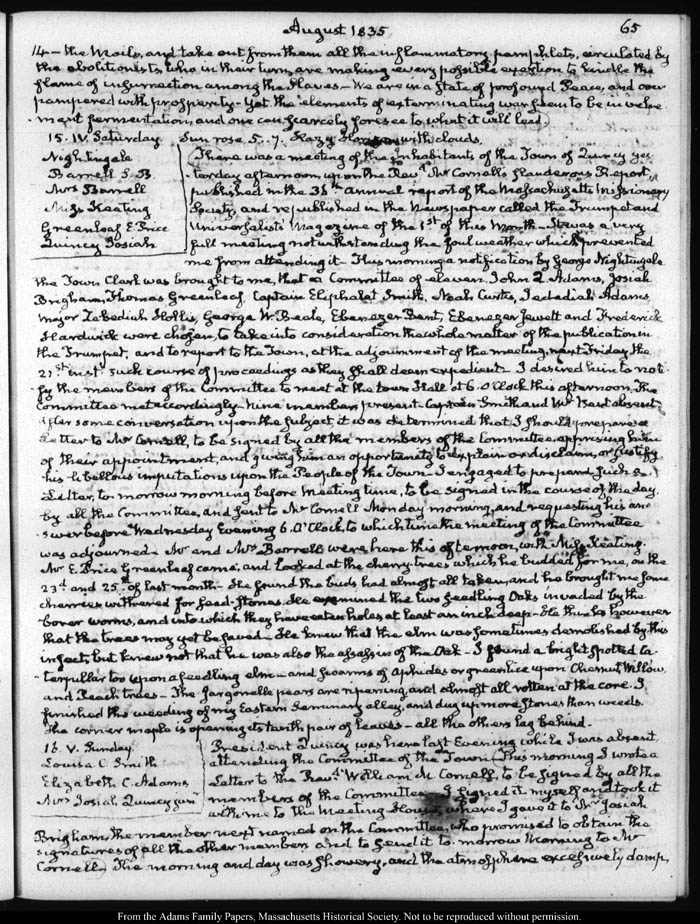 August 1835
65
14 — the Mails, and take out from them all the inflammatory pamphlets, circulated by
the abolitionists, who in their turn, are making every possible exertion to kindle the
flame of insurrection among the slaves — We are in a State of profound Peace, and over
pampered with prosperity — Yet the elements of exterminating war seem to be in vehe-
ment fermentation, and one can scarcely foresee to what it will lead.
15. IV. Saturday. Sun rose 5. 7. Hazy with clouds.
Nightingale
Barrell S. B.
Mrs Barrell
Miss Keating
Greenleaf E. Price
Quincy Josiah
There was a meeting of the Inhabitants of the Town of Quincy yes-
terday afternoon, upon the Revd. Mr Cornell's slanderous Report,
published in the 36th annual report of the Massachusetts Missionary
Society, and republished in the Newspaper called the Trumpet and
Universalist Magazine of the 1st of this Month — It was a very
full meeting notwithstanding the foul weather which prevented
me from attending it — This morning a notification by George Nightingale
the Town Clerk was brought to me, that a Committee of eleven, John Q. Adams, Josiah
Brigham, Thomas Greenleaf, Captain Eliphalet Smith, Noah Curtis, Jedediah Adams,
Major Zebediah Hollis, George W. Beale, Ebenezer Bent, Ebenezer Jewett and Frederick
Hardwick were chosen, to take into consideration the whole matter of the publication in
the Trumpet, and to report to the Town, at the adjournment of the meeting, next Friday the
21st inst. such course of proceedings as they shall deem expedient — I desired him to noti-
fy the members of the Committee to meet at the town Hall at 6. O'Clock this afternoon. The
Committee met accordingly — nine members present — Captain Smith and Mr Bent absent.
After some conversation upon the subject, it was determined that I should prepare a
Letter to Mr Cornell, to be signed by all the members of the Committee, apprising him
of their appointment, and giving him an opportunity to explain or disclaim, or justify
his libellous imputations upon the People of the Town. I engaged to prepare such a
Letter, to-morrow morning before Meeting time, to be signed in the course of the day
by all the Committee, and sent to Mr Cornell Monday morning, and requesting his an-
swer before Wednesday Evening 6. O'Clock, to which time the meeting of the Committee
was adjourned. Mr and Mrs Barrell were here this afternoon, with Miss Keating.
Mr E. Price Greenleaf came, and looked at the cherry trees which he budded for me, on the
23d and 25th of last month — He found the buds had almost all taken, and he brought me some
cherries withered for seed-stones. He examined the two seedling Oaks invaded by the
borer worms, and into which they have eaten holes at least an inch deep — He thinks however
that the trees may yet be saved — He knew that the elm was sometimes demolished by this
insect, but knew not that he was also the assassin of the Oak — I found a bright spotted ca-
terpillar too upon a seedling elm — and swarms of Aphides or green lice upon Chesnut, Willow,
and Peach trees — The Jargonelle pears are ripening, and almost all rotten at the core. I
finished the weeding of my Eastern Seminary alley, and dug up more stones than weeds.
The corner maple is opening its tenth pair of leaves — all the others lag behind.
16. V. Sunday.
Louisa C. Smith
Elizabeth C. Adams
Mrs Josiah Quincy junr
President Quincy was here last Evening while I was absent,
attending the Committee of the Town. This morning I wrote a
Letter to the Revd. William M. Cornell, to be signed by all the
members of the Committee — I signed it myself and took it
with me to the Meeting House, where I gave it to Mr Josiah
Brigham, the member next named on the Committee, who promised to obtain the
signatures of all the other members and to send it to-morrow Morning to Mr
Cornell. The morning and day was showery, and the atmosphere excessively damp,
From the Adams Family Papers, Massachusetts Historical Society. Not to be reproduced without permission.